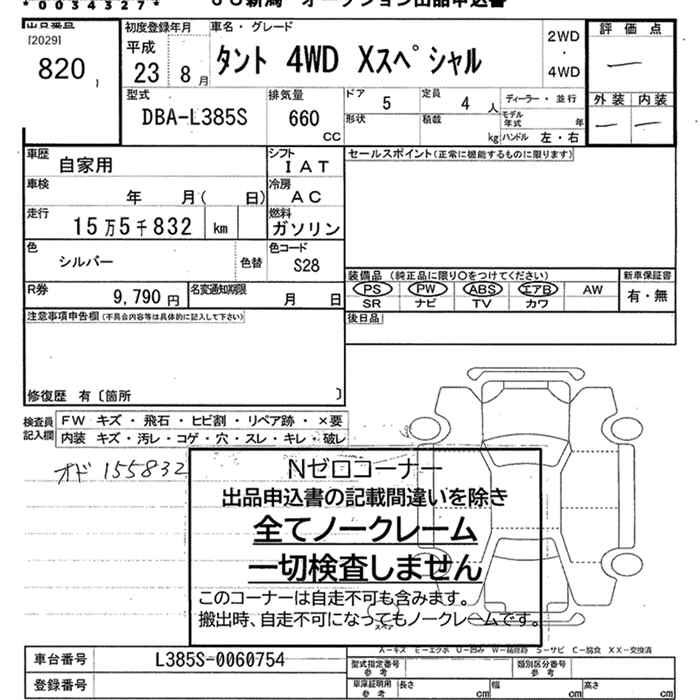 *0034327*
JU新潟 オークション出品申込書
出品番号
[2029]
820
初度登録年月
平成
23 8月
車名・グレード
タント 4WD Xスペシャル
2WD
・
4WD
評価点
外装 内装
型式
DBA-L385S
排気量
660
CC
ドア 5
定員 4 人
形状
積載 kg
ディーラー・並行
モデル年式 年
ハンドル 左・右
車歴
自家用
シフト
IAT
セールスポイント(正常に機能するものに限ります)
車検
年 月( 日)
冷房
AC
走行
15万5千832 km
燃料
ガソリン
色
シルバー
色替
色コード
S28
装備品 (純正品に限り〇をつけてください)
新車保証書
PS PW ABS エアB AW
SR ナビ TV カワ
有・無
R券
9,790 円
名変通知期限
月 日
後日品
注意事項申告欄(不具合内容等は具体的に記入して下さい)
修復歴 有〔箇所 〕
検査員記入欄
FW キズ・飛石・ヒビ割・リペア跡・×要
内装 キズ・汚レ・コゲ・穴・スレ・キレ・破レ
オド 155832
Nゼロコーナー
出品申込書の記載間違いを除き
全てノークレーム
一切検査しません
このコーナーは自走不可も含みます。
搬出時、自走不可になってもノークレームです。
A−キズ E−エクボ U−凹み W−補修跡 S−サビ C−腐食 XX−交換済
車台番号
L385S-0060754
登録番号
型式指定番号
参考
類別区分番号
参考
車庫証明用
参考
長さ cm
幅 cm
高さ cm